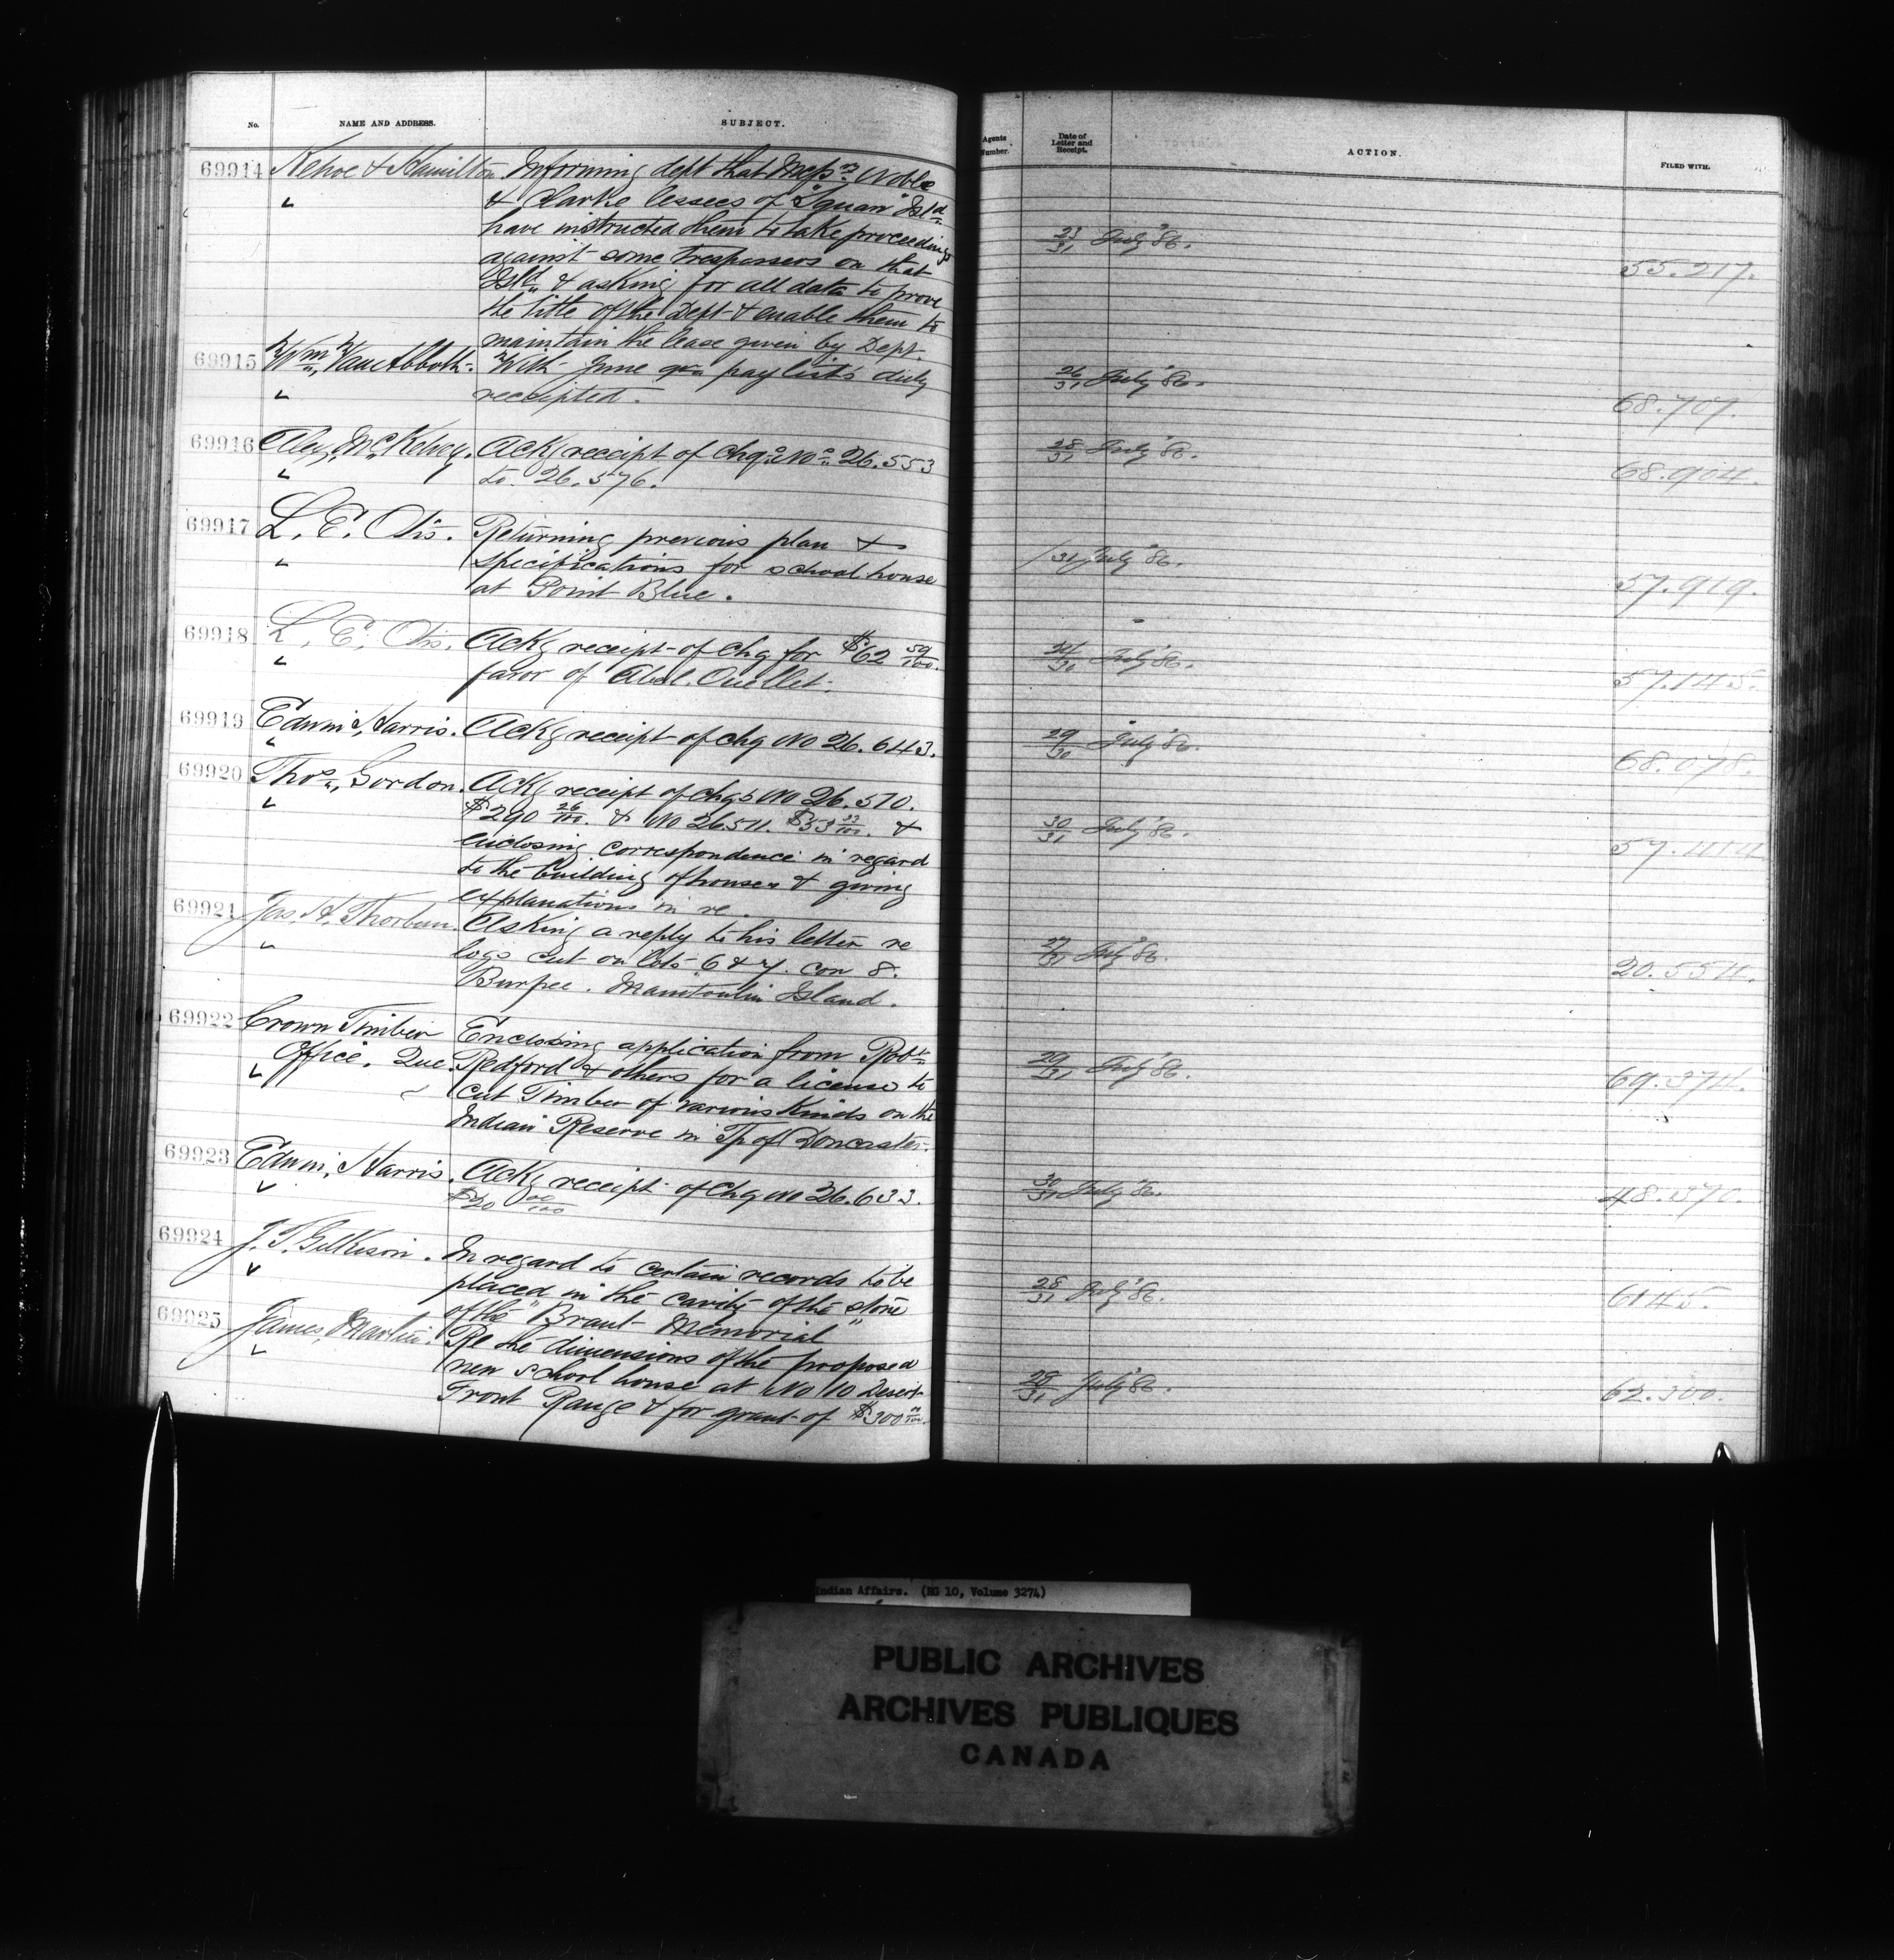 No. NAME AND ADDRESS. SUBJECT.
69914 Kehoe & Hamilton Informing dept that Messrs Noble
& Clarke lessees of "Squaw" Isld
have instructed them to take proceedings
against some trespassers on that
Isld & asking for all data to prove
the title of the Dept & enable them to
maintain the lease given by Dept.
69915 Wm Van Abbott. With June qr. paylists duly
receipted.
69916 Alex, McKelvey. Ackg receipt of chqs Nos 26.553
to 26.576.
69917 L. E. Otis. Returning previous plan &
specifications for school house
at Point Blue.
69918 L. E. Otis. Ackg receipt of chq for $62 59/100.
favor of Abel. Ouellet.
69919 Edwin, Harris. Ackg receipt of chq No 26.643.
69920 Thos, Gordon. Ackg receipt of chqs No 26.510.
$290 26/100. & No 26511. $53 33/100. &
enclosing correspondence in regard
to the building of houses & giving
explanations in re.
69921 Jas. H. Thorburn. Asking a reply to his letter re
logs cut on lots 6 & 7. con 8.
Burpee. Manitoulin Island.
69922 Crown Timber Enclosing application from Robt
Office. Que. Redford & others for a license to
cut Timber of various Kinds on the
Indian Reserve in Tp of Doncaster.
69923 Edwin, Harris. Ackg receipt of chq No 26.633.
$20 00/100
69924 J. T. Gilkison. In regard to certain records to be
placed in the cavity of the stone
of the "Brant Memorial"
69925 James, Martin. Re the dimensions of the proposed
new school house at No 10 Desert
Front Range & for grant of $300 00/100.
Agents Number. Date of Letter and Receipt. ACTION. FILED WITH.
23/31 July "86. 55.217.
26/31 July "86. 68.707.
28/31 July "86. 68.904.
/31 July "86. 57.919.
July "86. 57.145.
29/30 July "86. 68.078.
30/31 July "86. 57.414
27/31 July "86. 20.554.
29/31 July "86. 69.374.
30/31 July "86. 48.370.
28/31 July "86. 6145.
29/31 July "86. 62.300.
Indian Affairs. (RG 10, Volume 3274)
PUBLIC ARCHIVES
ARCHIVES PUBLIQUES
CANADA